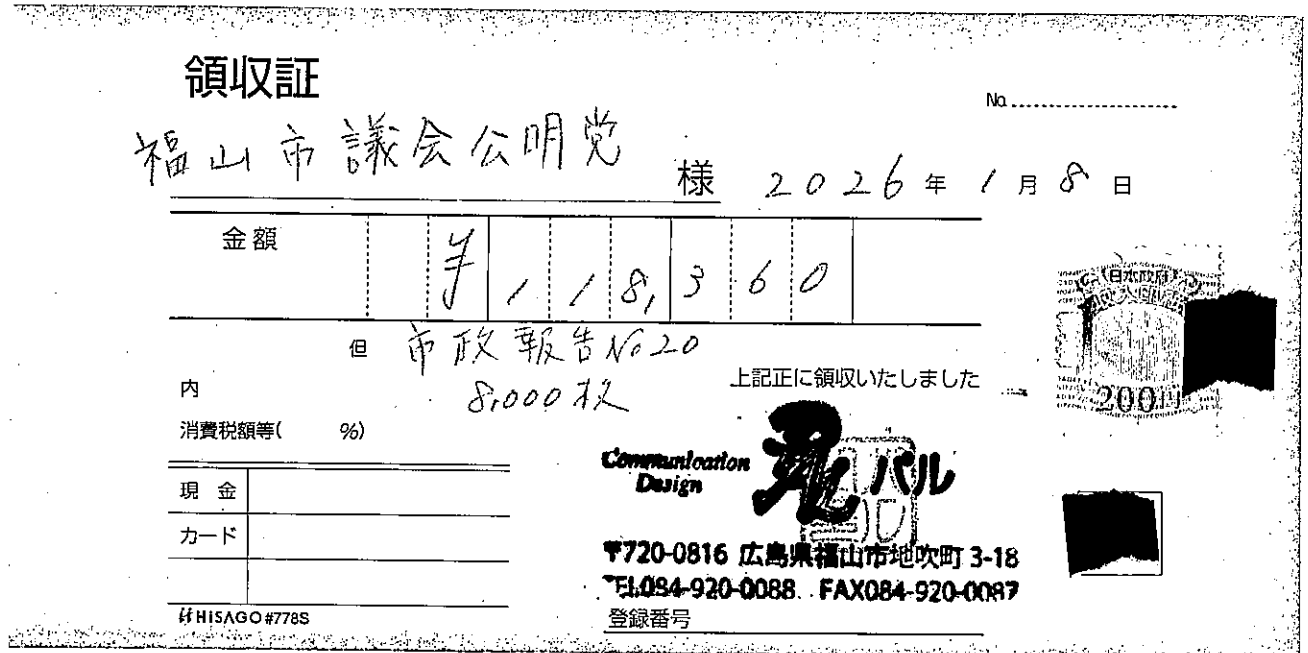 領収証
No.
福山市議会公明党 様 2026年1月8日
金額 ¥118,360
但 市政報告No20
8,000枚
上記正に領収いたしました
内
消費税額等( %)
現金
カード
HISAGO #778S
日本政府
200円
Communication
Design
パル
〒720-0816 広島県福山市地吹町 3-18
TEL084-920-0088 FAX084-920-0087
登録番号